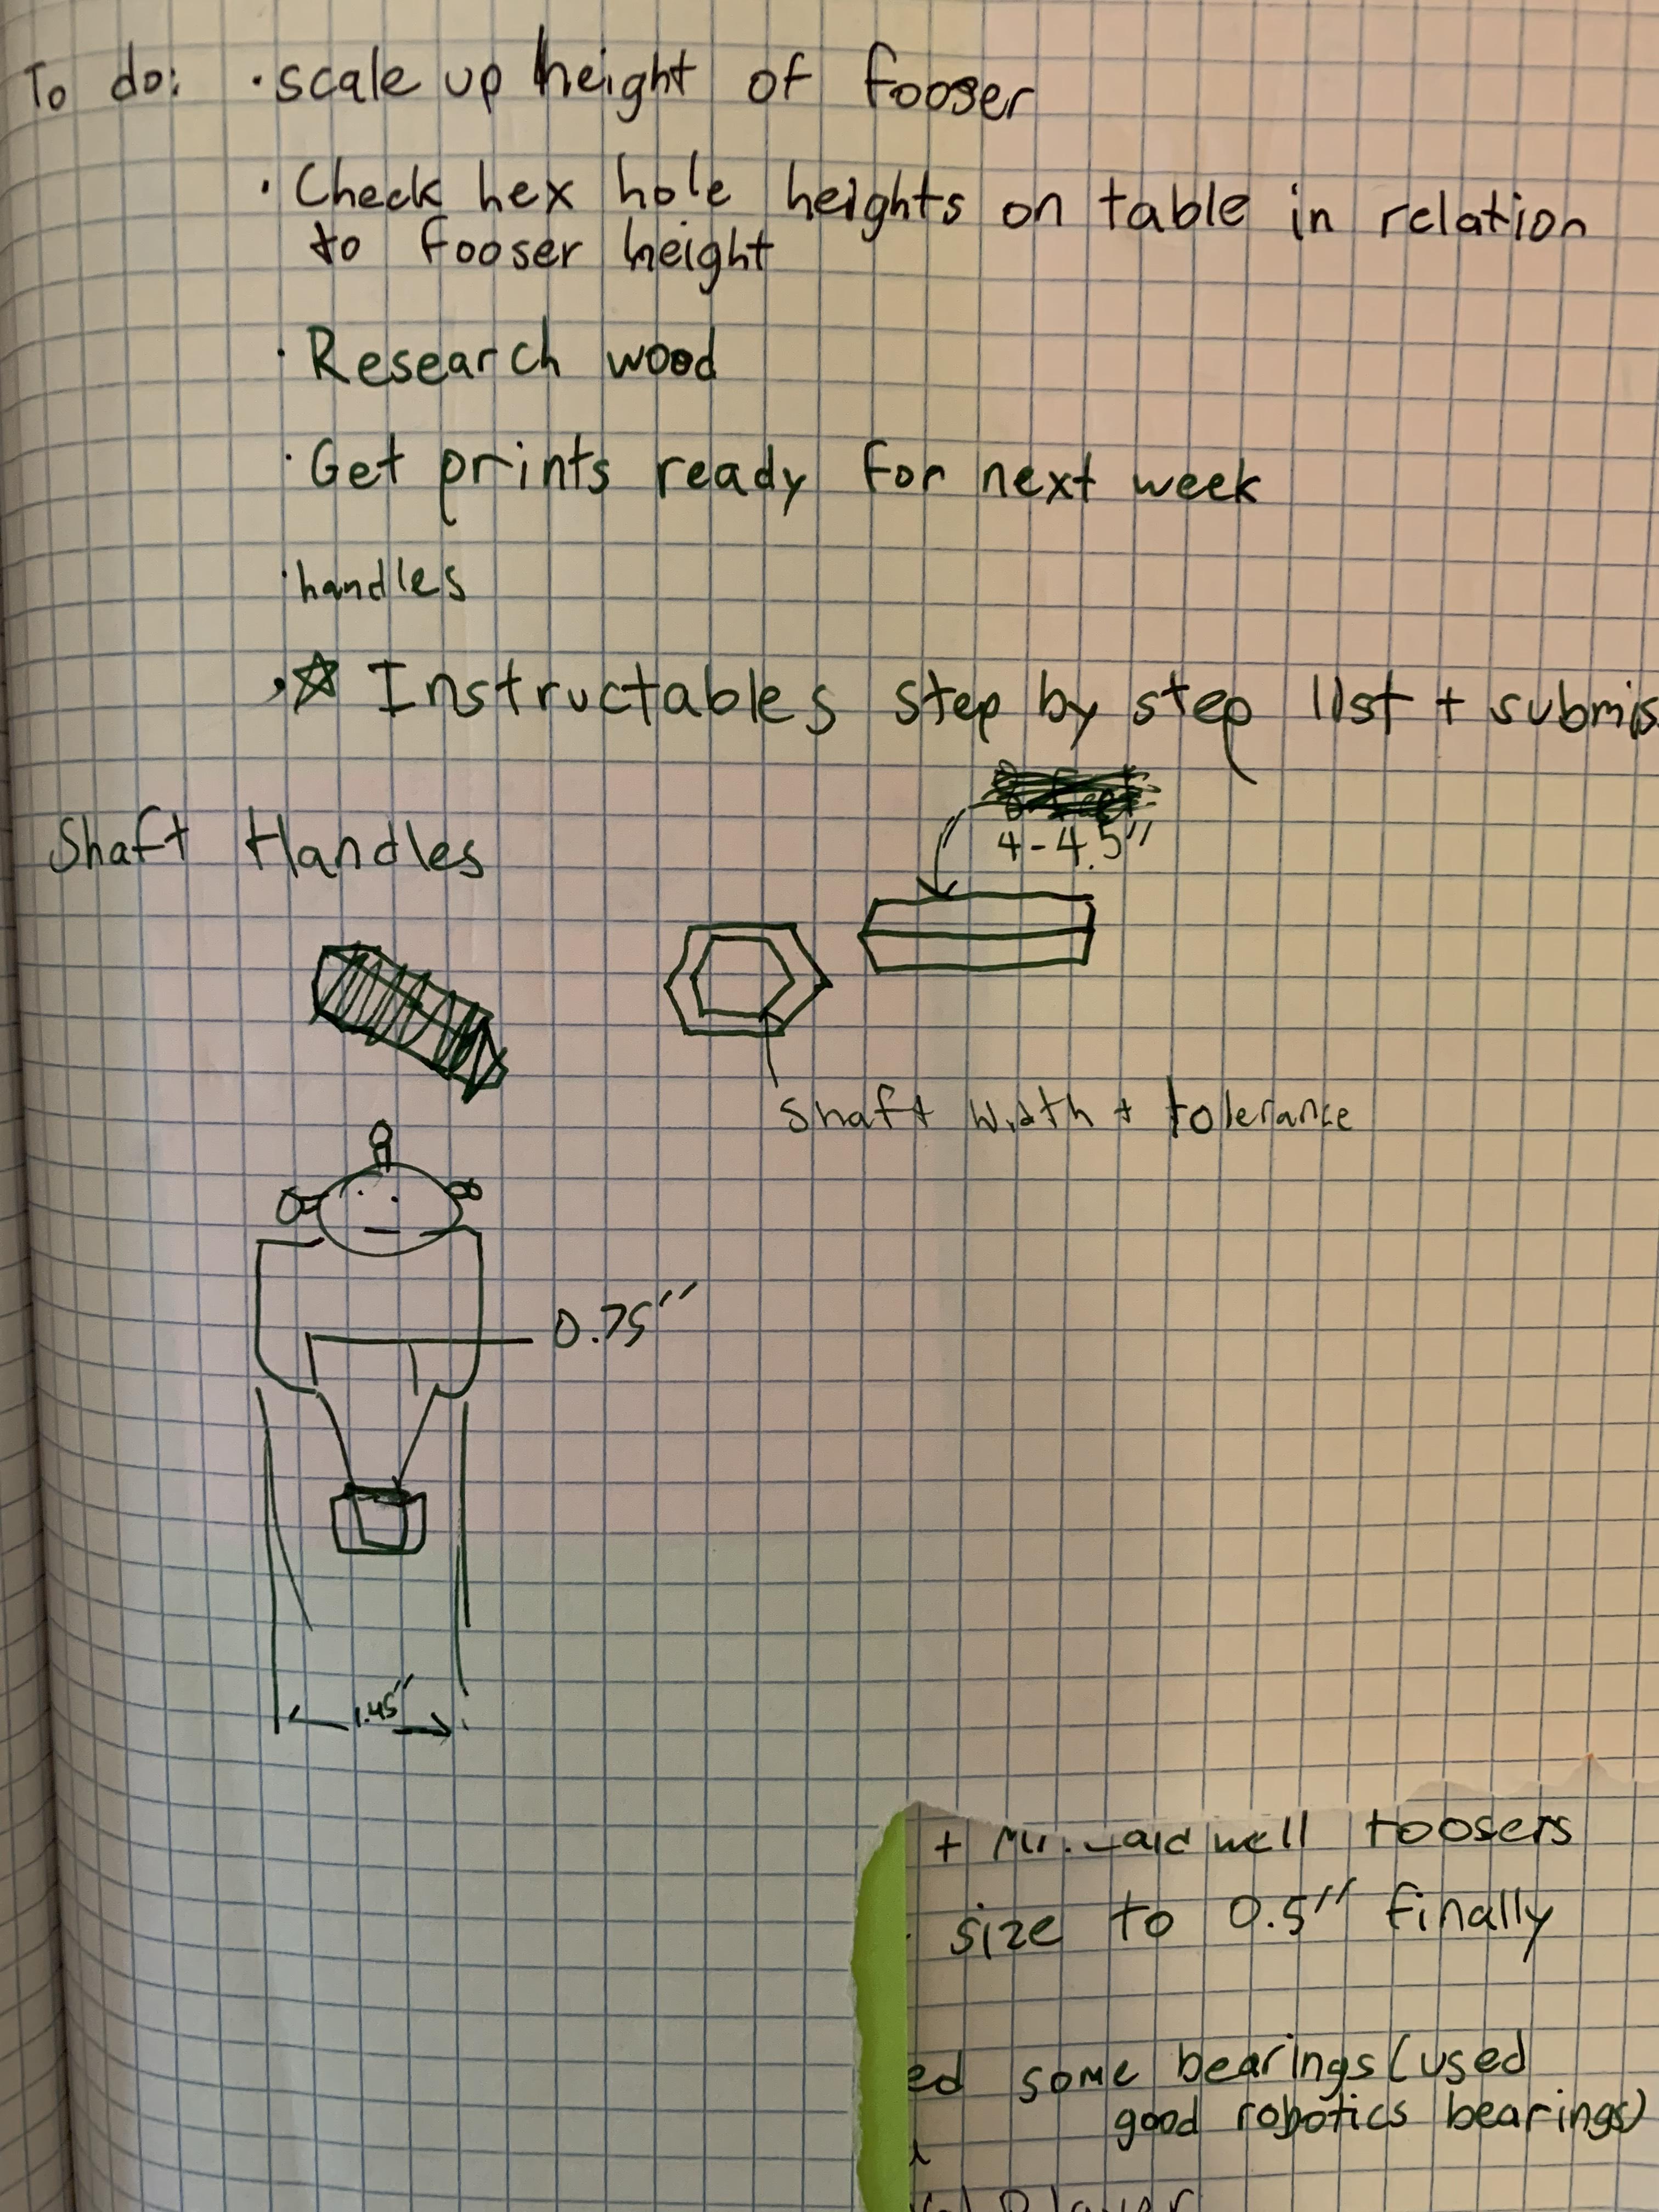 To do: · scale up height of fooser
· Check hex hole heights on table in relation
to fooser height
· Research wood
· Get prints ready for next week
· handles
· ☆ Instructables step by step list + submis
Shaft Handles
4-4.5"
shaft width + tolerance
0.75"
1.45"
+ Mr. well foosers
size to 0.5" finally
ed some bearings (used
good robotics bearings)